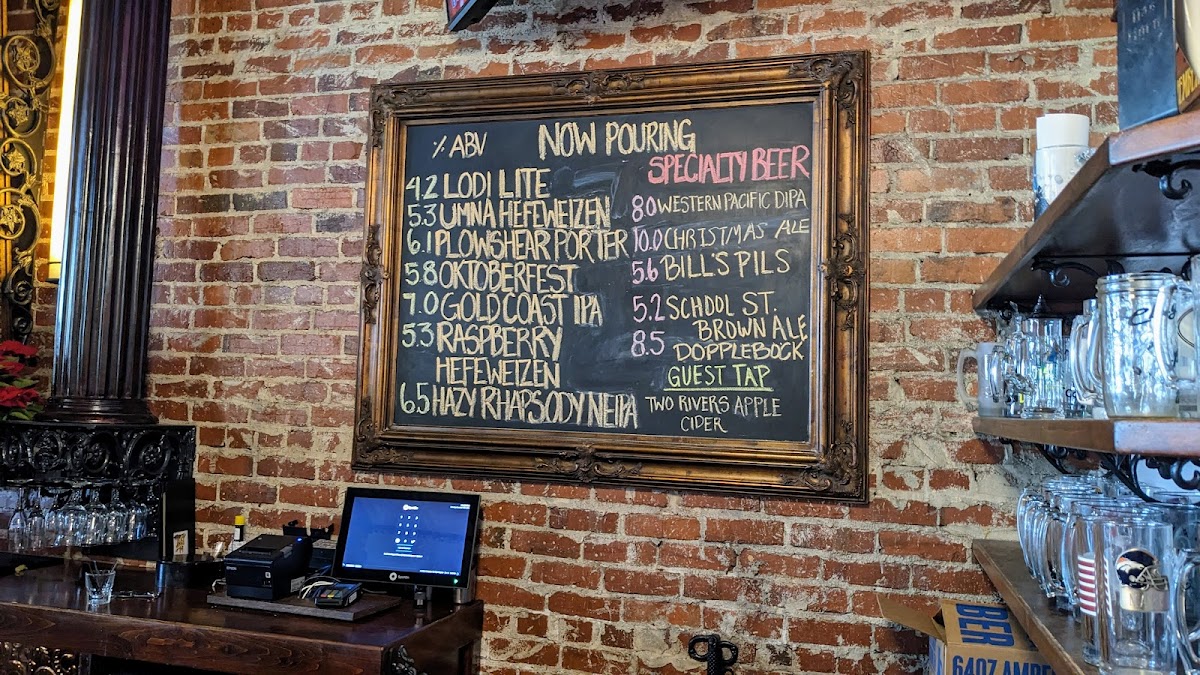 % ABV
NOW POURING
4.2 LODI LITE
5.3 UMNA HEFEWEIZEN
6.1 PLOWSHEAR PORTER
5.8 OKTOBERFEST
7.0 GOLD COAST IPA
5.3 RASPBERRY
HEFEWEIZEN
6.5 HAZY RHAPSODY NEIPA
SPECIALTY BEER
8.0 WESTERN PACIFIC DIPA
10.0 CHRISTMAS ALE
5.6 BILL'S PILS
5.2 SCHOOL ST.
BROWN ALE
8.5 DOPPLEBOCK
GUEST TAP
TWO RIVERS APPLE
CIDER
BER
64OZ AMBE